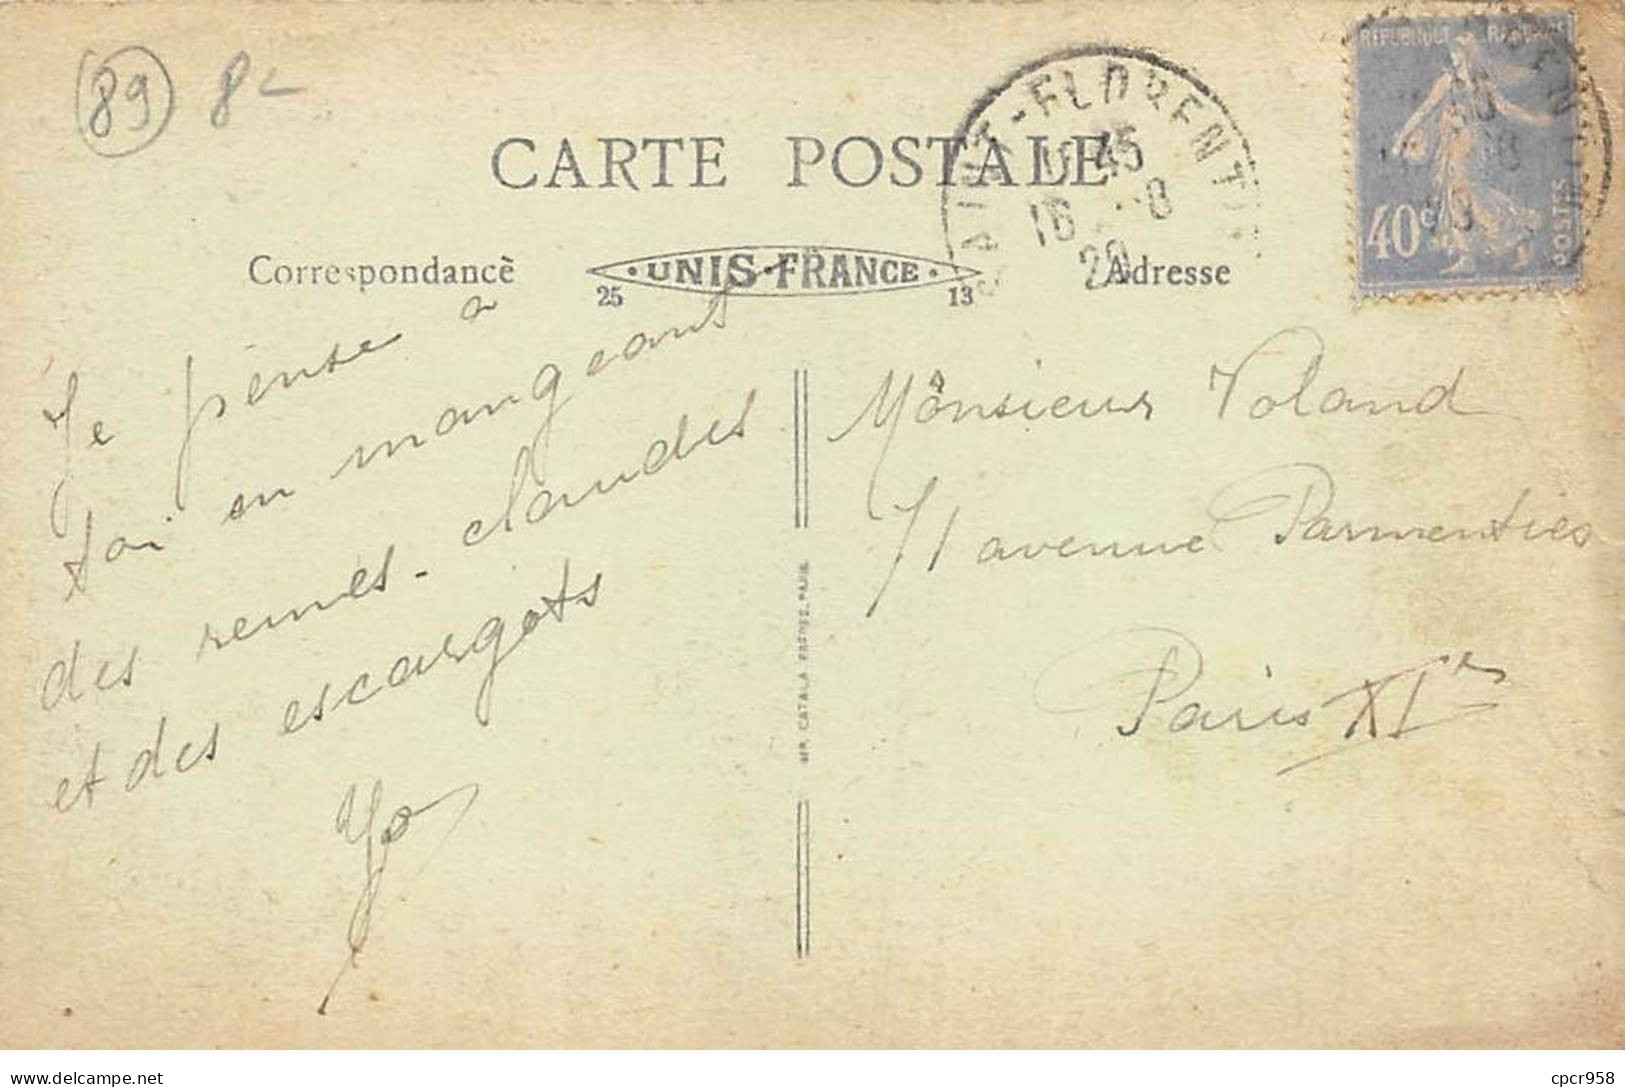 89 8-
CARTE POSTALE
SAINT-FLORENTIN
15 45
16 -8
29
REPUBLIQUE FRANÇAISE
40c
POSTES
Correspondancè
UNIS-FRANCE
25 13
Adresse
Je pense à
toi en mangeant
des reines-claudes
et des escargots
Yo
Monsieur Voland
71 avenue Parmentier
Paris XIr
IMP. CATALA FRERES, PARIS
delcampe.net
cpcr958